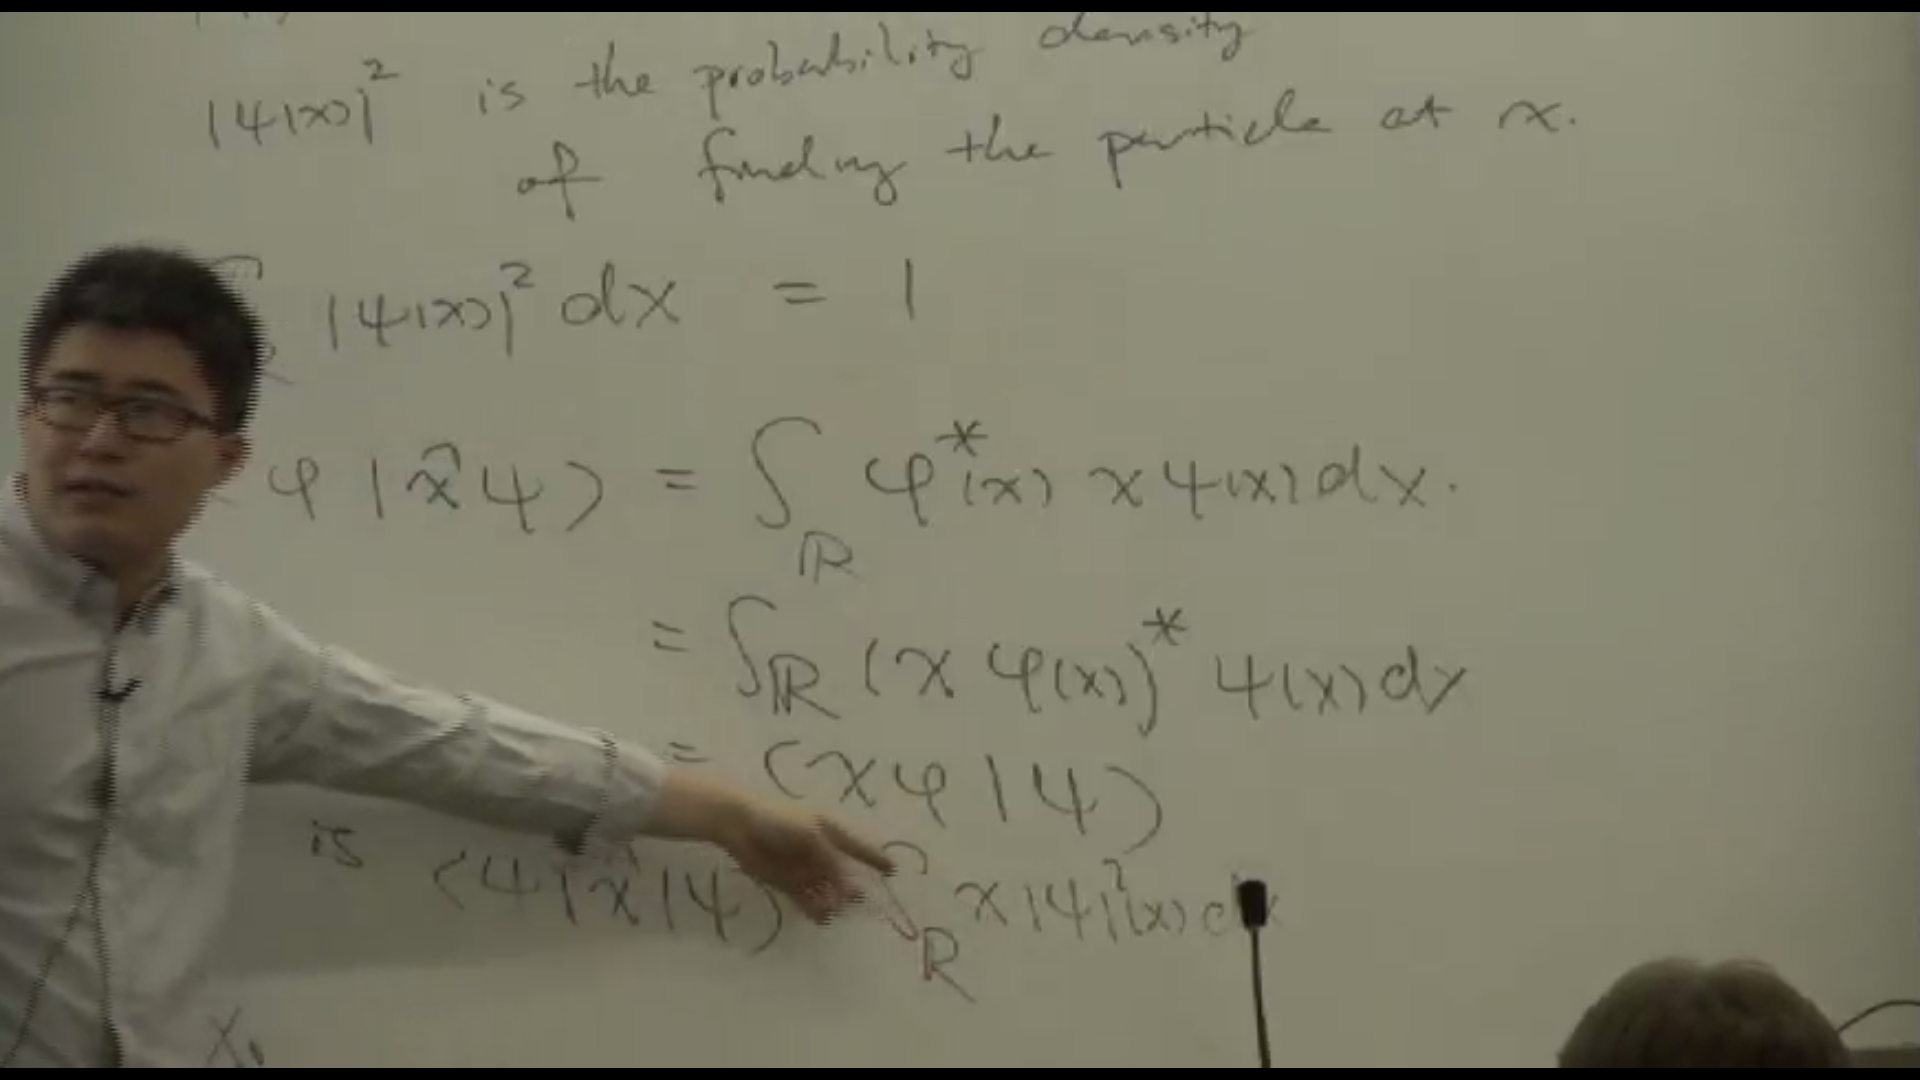 |ψ(x)|² is the probability density
of finding the particle at x.
|ψ(x)|² dx = 1
φ | x̂ ψ ⟩ = ∫_ℝ φ*(x) x ψ(x) dx.
= ∫_ℝ (x φ(x))* ψ(x) dx
= ⟨x φ | ψ⟩
is ⟨ψ | x̂ | ψ⟩ ∫_ℝ x |ψ|²(x) dx